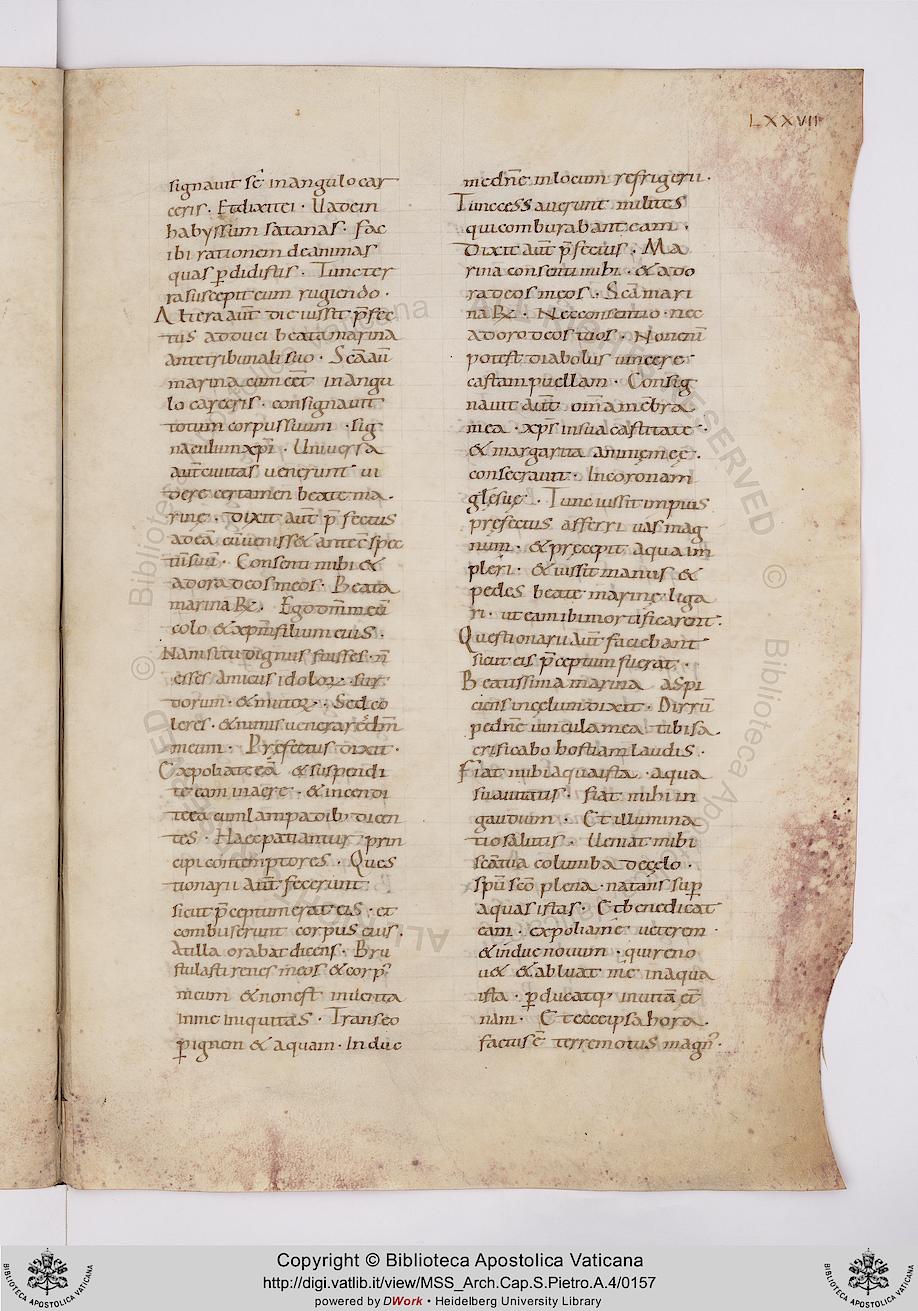 LXXVII
signavit se͞ in angulo car
ceris · Et dixit ei · Vade in
habyssum satanas · fac
ibi rationem de animas
quas p̱didistis · Tunc ter
ra suscepit eum rugiendo ·
Altera aut̄ die iussit p̄fec
tus adduci beata marina
ante tribunali suo · Sc̄a aū
marina cum eēt in angu
lo carceris · consignavit
totum corpus suum · sig
naculum xp̄i · Universa
aut̄ civitas venerunt vi
dere certamen beate ma ·
rinę · Dixit aut̄ p̄fectus
ad eā cū venisset ante c̄spec
tū suū · Consenti mihi &
adora deos meos · Beata
marina R͞c · Ego dn̄m meū
colo & xp̄m filium eius ·
Nam si tu dignus fuisses · n̄
esses amicus idoloꝝ · sur
dorum · & mutoꝝ · Sed co
leres · & nimis venerares dn̄m
meum · Prefectus dixit ·
Expoliate eā & suspendi
te eam in aere · & incendi
te ea cum lampadib; dicen
tes · Haec patiantur prin
cipi contemptores · Ques
tionarii aut̄ fecerunt
sicut p̄ceptum erat eis · et
combuserunt corpus eius ·
At illa orabat dicens · Bru
stulasti renes meos & corp'
meum & non est inventa
in me iniquitas · Transeo
p̱ ignem & aquam · Induc
me dn̄e in locum refrigerii ·
Tunc cessaverunt milites
qui comburabant eam ·
Dixit aut̄ p̄fectus · Ma
rina consenti mihi · & ado
ra deos meos · Sc̄a mari
na R͞c · Nec consentio · nec
adoro deos tuos · Non enī
potest diabolus vincere
castam puellam · Consig
navit aut̄ om̄a mēbra
mea · xp̄s in sua castitate ·
& margarita animę meę ·
consecravit · In coronam
glę suę · Tunc iussit impius
pręfectus afferri vas mag
num · & pręcepit aqua im
pleri · & iussit manus &
pedes beate marinę liga
ri · ut eam ibi mortificarent ·
Questionarii aut̄ faciebant
sicut eis p̄ceptum fuerat ·
Beatissima marina aspi
ciens in celum dixit · Dirrū
pe dn̄e vincula mea · tibi sa
crificabo hostiam laudis ·
Fiat mihi aqua ista · aqua
suavitatis · fiat mihi in
gaudium · Et illumina
tio salutis · Veniat mihi
sc̄a tua columba de cęlo ·
sp̄u sc̄o plena · natans sup̱
aquas istas · Et benedicat
eam · expolia me veterem ·
& indue novum · qui reno
vet & abluat me in aqua
ista · p̱ducatq; in vitā et̄
nam · Et ecce ipsa hora ·
factus ē terremotus magn' ·
Copyright © Biblioteca Apostolica Vaticana
http://digi.vatlib.it/view/MSS_Arch.Cap.S.Pietro.A.4/0157
powered by DWork • Heidelberg University Library